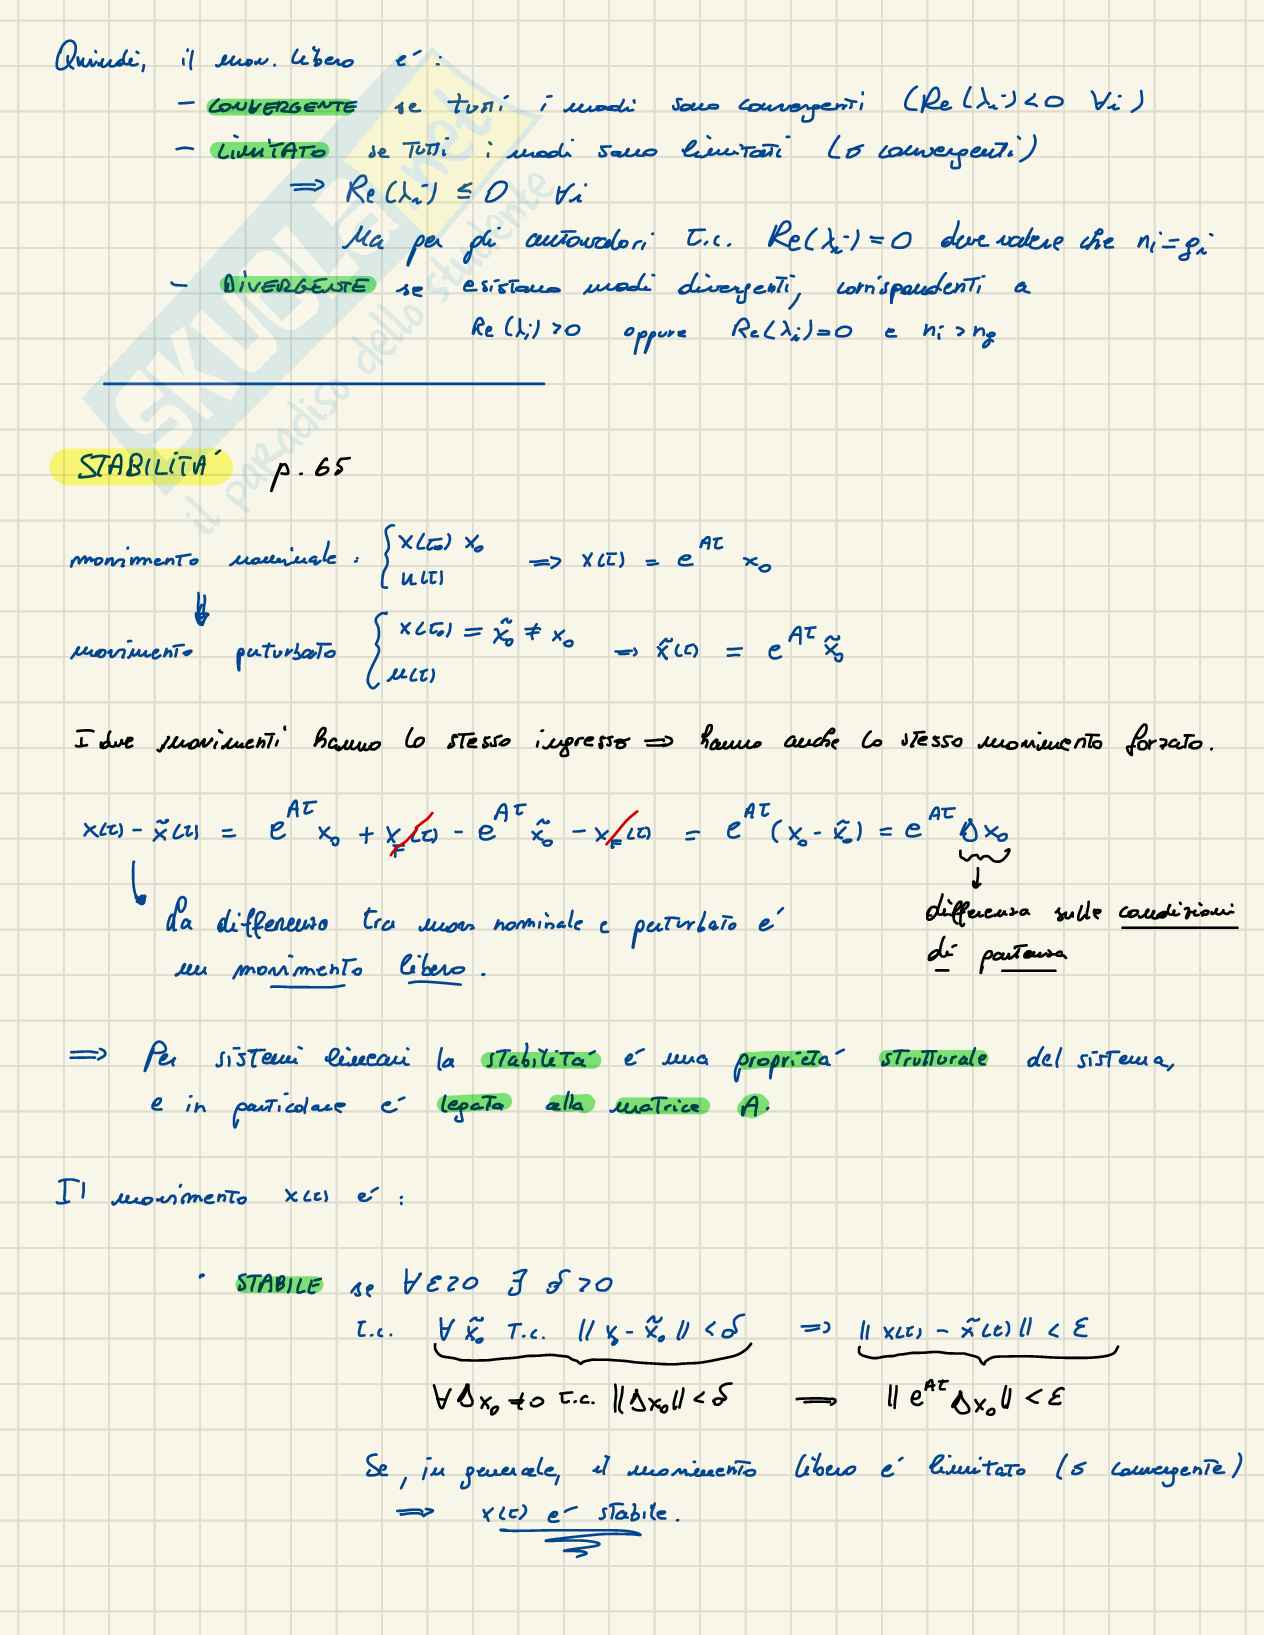 Quindi, il mov. libero é :
- CONVERGENTE se tutti i modi sono convergenti (Re(λi)<0 ∀i)
- LIMITATO se tutti i modi sono limitati (o convergenti)
⇒ Re(λi) ≤ 0 ∀i
Ma per gli autovalori t.c. Re(λi)=0 deve valere che ni=gi
- DIVERGENTE se esistono modi divergenti, corrispondenti a
Re(λi)>0 oppure Re(λi)=0 e ni>ng
STABILITÁ p.65
movimento nominale : { x(t0) x0 ⇒ x(t) = e^At x0
u(t)
⇓
movimento perturbato { x(t0) = x̃0 ≠ x0 ⇒ x̃(t) = e^At x̃0
u(t)
I due movimenti hanno lo stesso ingresso ⇒ hanno anche lo stesso movimento forzato.
x(t) - x̃(t) = e^At x0 + xF(t) - e^At x̃0 - xF(t) = e^At (x0 - x̃0) = e^At Δx0
↓
differenza sulle condizioni
di partenza
La differenza tra mov nominale e perturbato é
un movimento libero.
⇒ Per sistemi lineari la stabilitá é una proprietá strutturale del sistema,
e in particolare é legata alla matrice A.
Il movimento x(t) é :
· STABILE se ∀ε>0 ∃ δ>0
t.c. ∀ x̃0 t.c. ‖x0 - x̃0‖ < δ ⇒ ‖x(t) - x̃(t)‖ < ε
∀Δx0 ≠0 t.c. ‖Δx0‖<δ ⇒ ‖e^At Δx0‖ < ε
Se, in generale, il movimento libero é limitato (o convergente)
⇒ x(t) é stabile.
SKUOLA.net
il paradiso dello studente